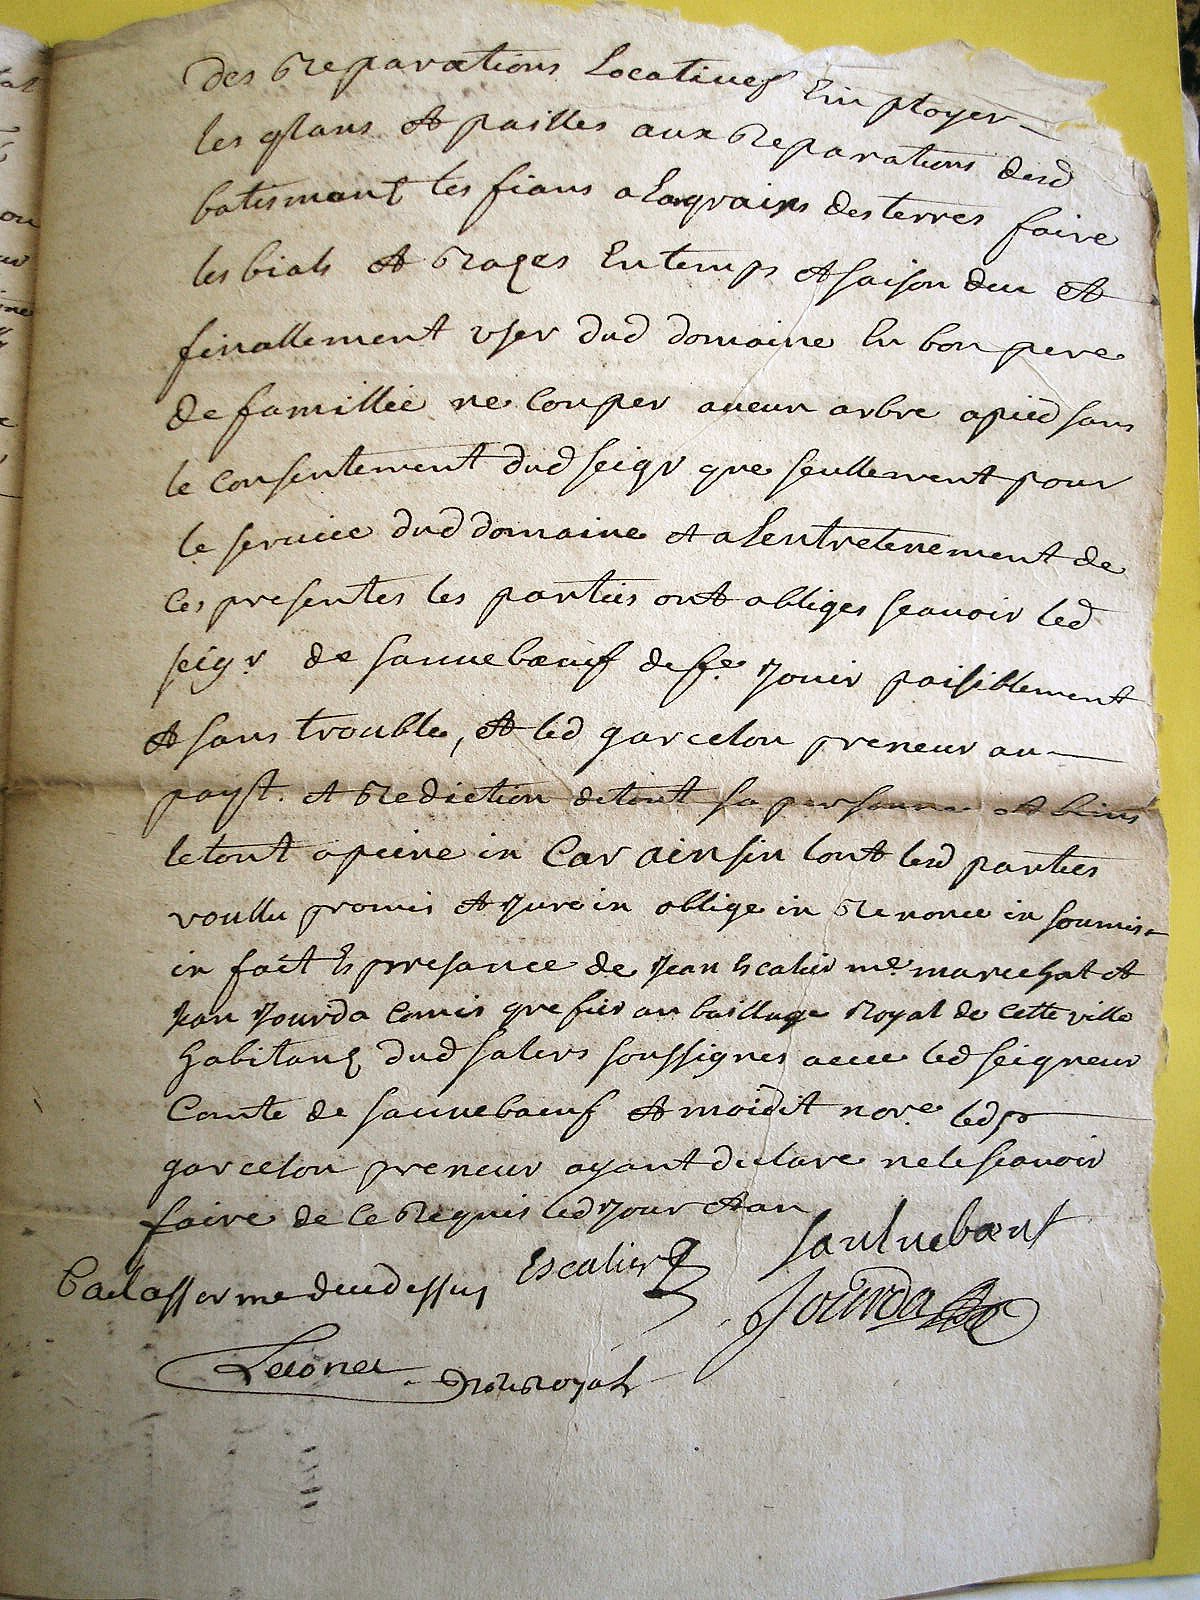 des reparations locatives Employer
les glans et pailles aux reparations desd
batismant les fians a lagrain des terres faire
les bials et razes En temps et saison deu et
finallement user dud domaine En bon pere
de famillie ne couper aucun arbre a pied sans
le consentement dud seigr que seullement pour
le service dud domaine et a lentretenement de
ces presentes les parties ont obliges scavoir led
seigr de sauveboeuf de fe jouir paisiblement
et sans trouble, et led garcelon preneur au
payt. et rediction de tout sa personne et biens
le tout a peine in Car ainsin lont lesd parties
voullu promis et jure in oblige in renonce in soumis
in fait Es presance de Jean Escalier md marechat et
Jean Jourda comis grefier au baillage Royal de cette ville
habitans dud salers soussignes avec led seigneur
Comte de sauveboeuf et moidit nore led sr
garcelon preneur ayant declare ne le scavoir
faire de ce Requis led jour et an
Escalier Saulveboeuf
Bail a fferme deudessus
Jourda
Laconer
not Royal